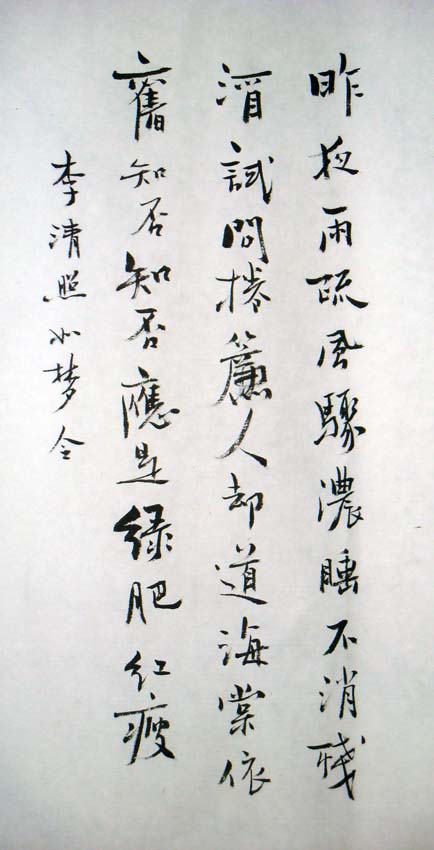 昨夜雨疏風驟濃睡不消残
酒試問捲簾人却道海棠依
舊知否知否應是緑肥紅瘦
李清照如梦令